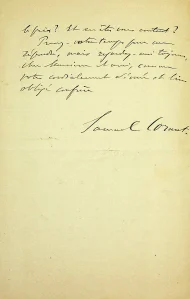 le prix ? Et en êtes-vous content ?
Prenez votre temps pour me
répondre, mais regardez-moi toujours,
cher Monsieur et ami, comme
votre cordialement dévoué et bien
obligé confrère
Samuel